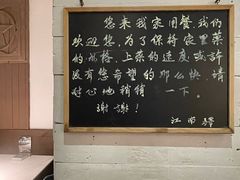 您来我家用餐我们
欢迎您，为了保持家里菜
的风格，上菜的速度或许
没有您希望的那么快，请
耐心地稍稍 一下。
谢谢！
江南驿